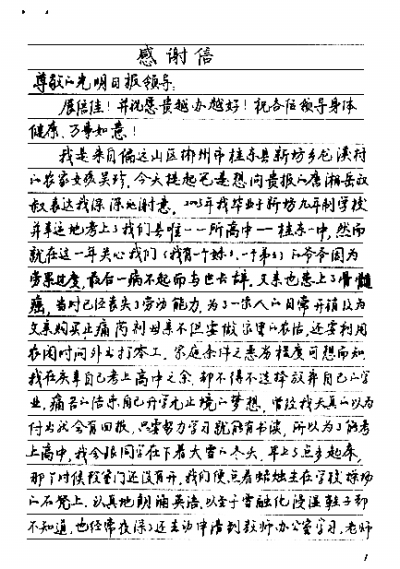 感谢信
尊敬的光明日报领导:
展信佳!并祝愿贵报越办越好!祝各位领导身体
健康,万事如意!
我是来自偏远山区郴州市桂东县新坊乡龙溪村
的农家女孩吴珍,今天提起笔是想向贵报的唐湘岳叔
叔表达我深深的谢意。2003年我毕业于新坊九年制学校
并幸运地考上了我们县唯一一所高中——桂东一中,然而
就在这一年关心我们(我有一个妹、一个弟)的爷爷因为
劳累过度,最后一病不起而与世长辞,父亲也患上了骨髓
癌,当时已经丧失了劳动能力,为了一家人的日常开销及为
父亲购买止痛药剂母亲不但要做家里的农活,还要利用
农闲时间外出打零工,家庭条件之恶劣程度可想而知。
我在庆幸自己考上高中之余,却不得不选择放弃自己的学
业,痛苦的结束自己升学无止境的梦想,曾经我天真的以为
付出就会有回报,只要努力学习就能有书读,所以为了能考
上高中,我会跟同学在下着大雪的冬天,早上5点多起来,
那个时候校室门还没有开,我们便点着蜡烛坐在学校操场
的石凳上,认真地朗诵英语,以至于雪融化浸湿鞋子都
不知道,也经常夜深了还主动申请到教师办公室学习,老师
1